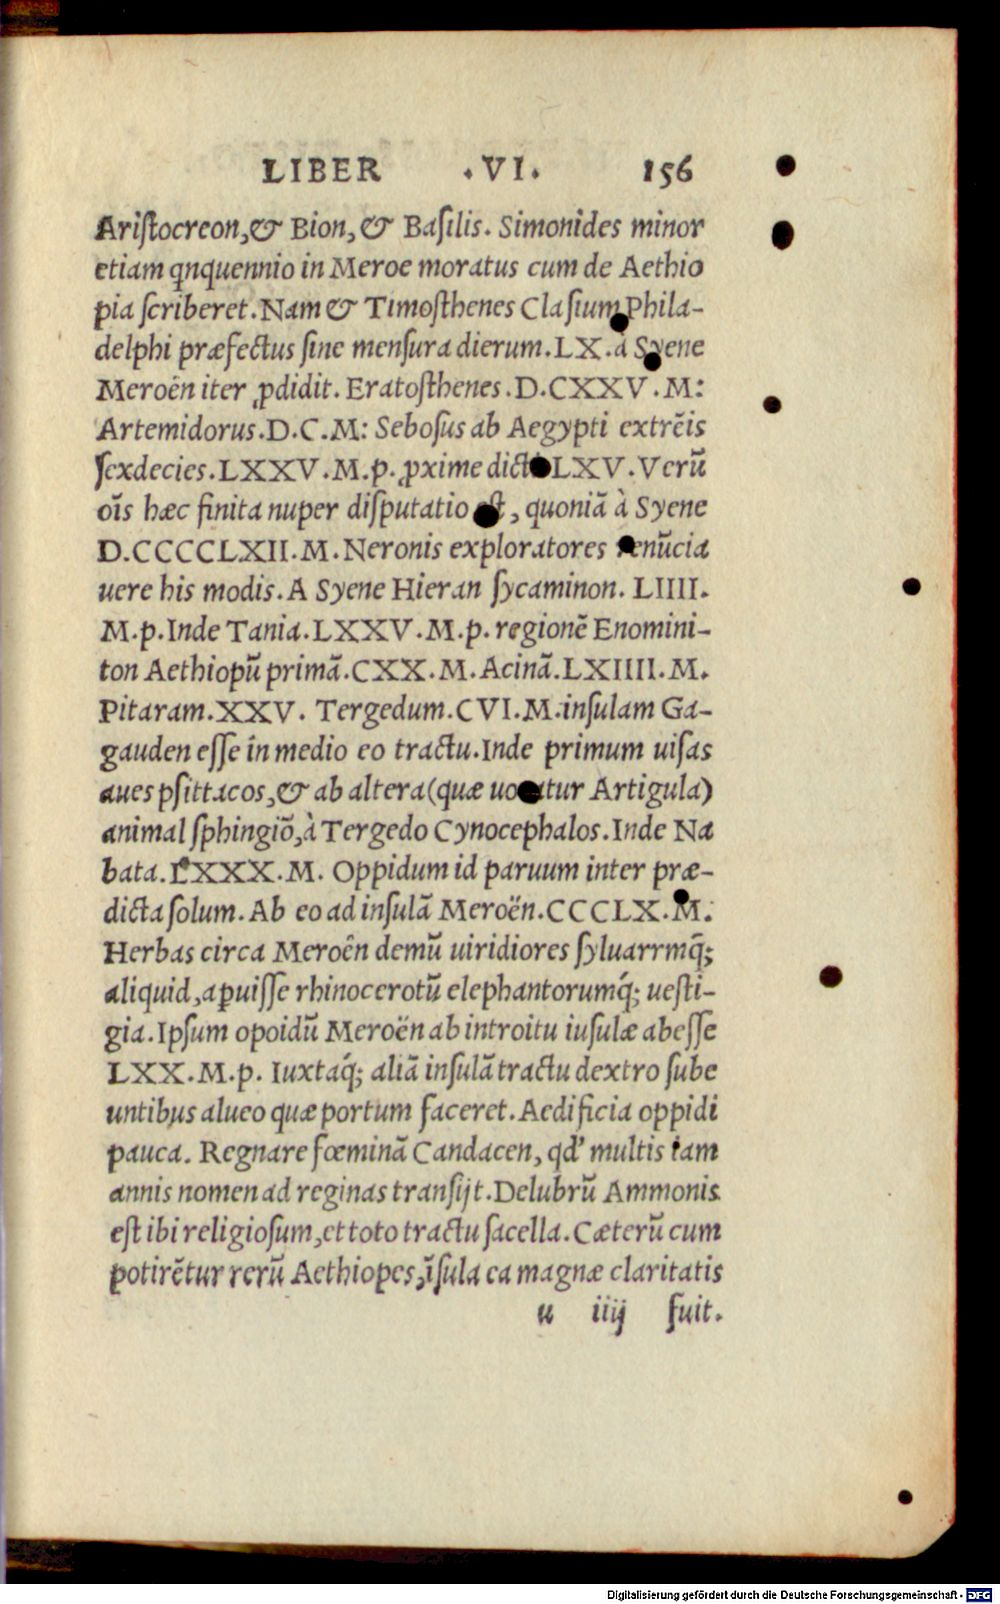 LIBER .VI. 156
Ariſtocreon,& Bion,& Baſilis. Simonides minor
etiam qnquennio in Meroe moratus cum de Aethio
pia ſcriberet. Nam & Timoſthenes Claſium Phila-
delphi præfectus ſine menſura dierum. LX. à Syene
Meroën iter ꝓdidit. Eratoſthenes. D.CXXV. M:
Artemidorus. D.C.M: Seboſus ab Aegypti extrēis
ſexdecies. LXXV. M.p. ꝓxime LXV. Verū
oīs hæc finita nuper diſputatio eſt, quoniā à Syene
D.CCCCLXII. M. Neronis exploratores renūcia
uere his modis. A Syene Hieran ſycaminon. LIIII.
M.p. Inde Tania. LXXV. M.p. regionē Enomini-
ton Aethiopū primā. CXX. M. Acinā. LXIIII. M.
Pitaram. XXV. Tergedum. CVI. M. inſulam Ga-
gauden eſſe in medio eo tractu. Inde primum uiſas
aues pſittacos,& ab altera (quæ uocatur Artigula)
animal ſphingiō, à Tergedo Cynocephalos. Inde Na
bata. LXXX. M. Oppidum id paruum inter præ-
dicta ſolum. Ab eo ad inſulā Meroën. CCCLX. M.
Herbas circa Meroën demū uiridiores ſyluarrmq̄;
aliquid, apuiſſe rhinocerotū elephantorumq́; ueſti-
gia. Ipſum opoidū Meroën ab introitu iuſulæ abeſſe
LXX. M.p. Iuxtaq́; aliā inſulā tractu dextro ſube
untibus alueo quæ portum faceret. Aedificia oppidi
pauca. Regnare fœminā Candacen, qd' multis iam
annis nomen ad reginas tranſijt. Delubrū Ammonis
eſt ibi religioſum, et toto tractu ſacella. Cæterū cum
potirētur rerū Aethiopes, īſula ea magnæ claritatis
u iiij fuit.
Digitalisierung gefördert durch die Deutsche Forschungsgemeinschaft - DFG